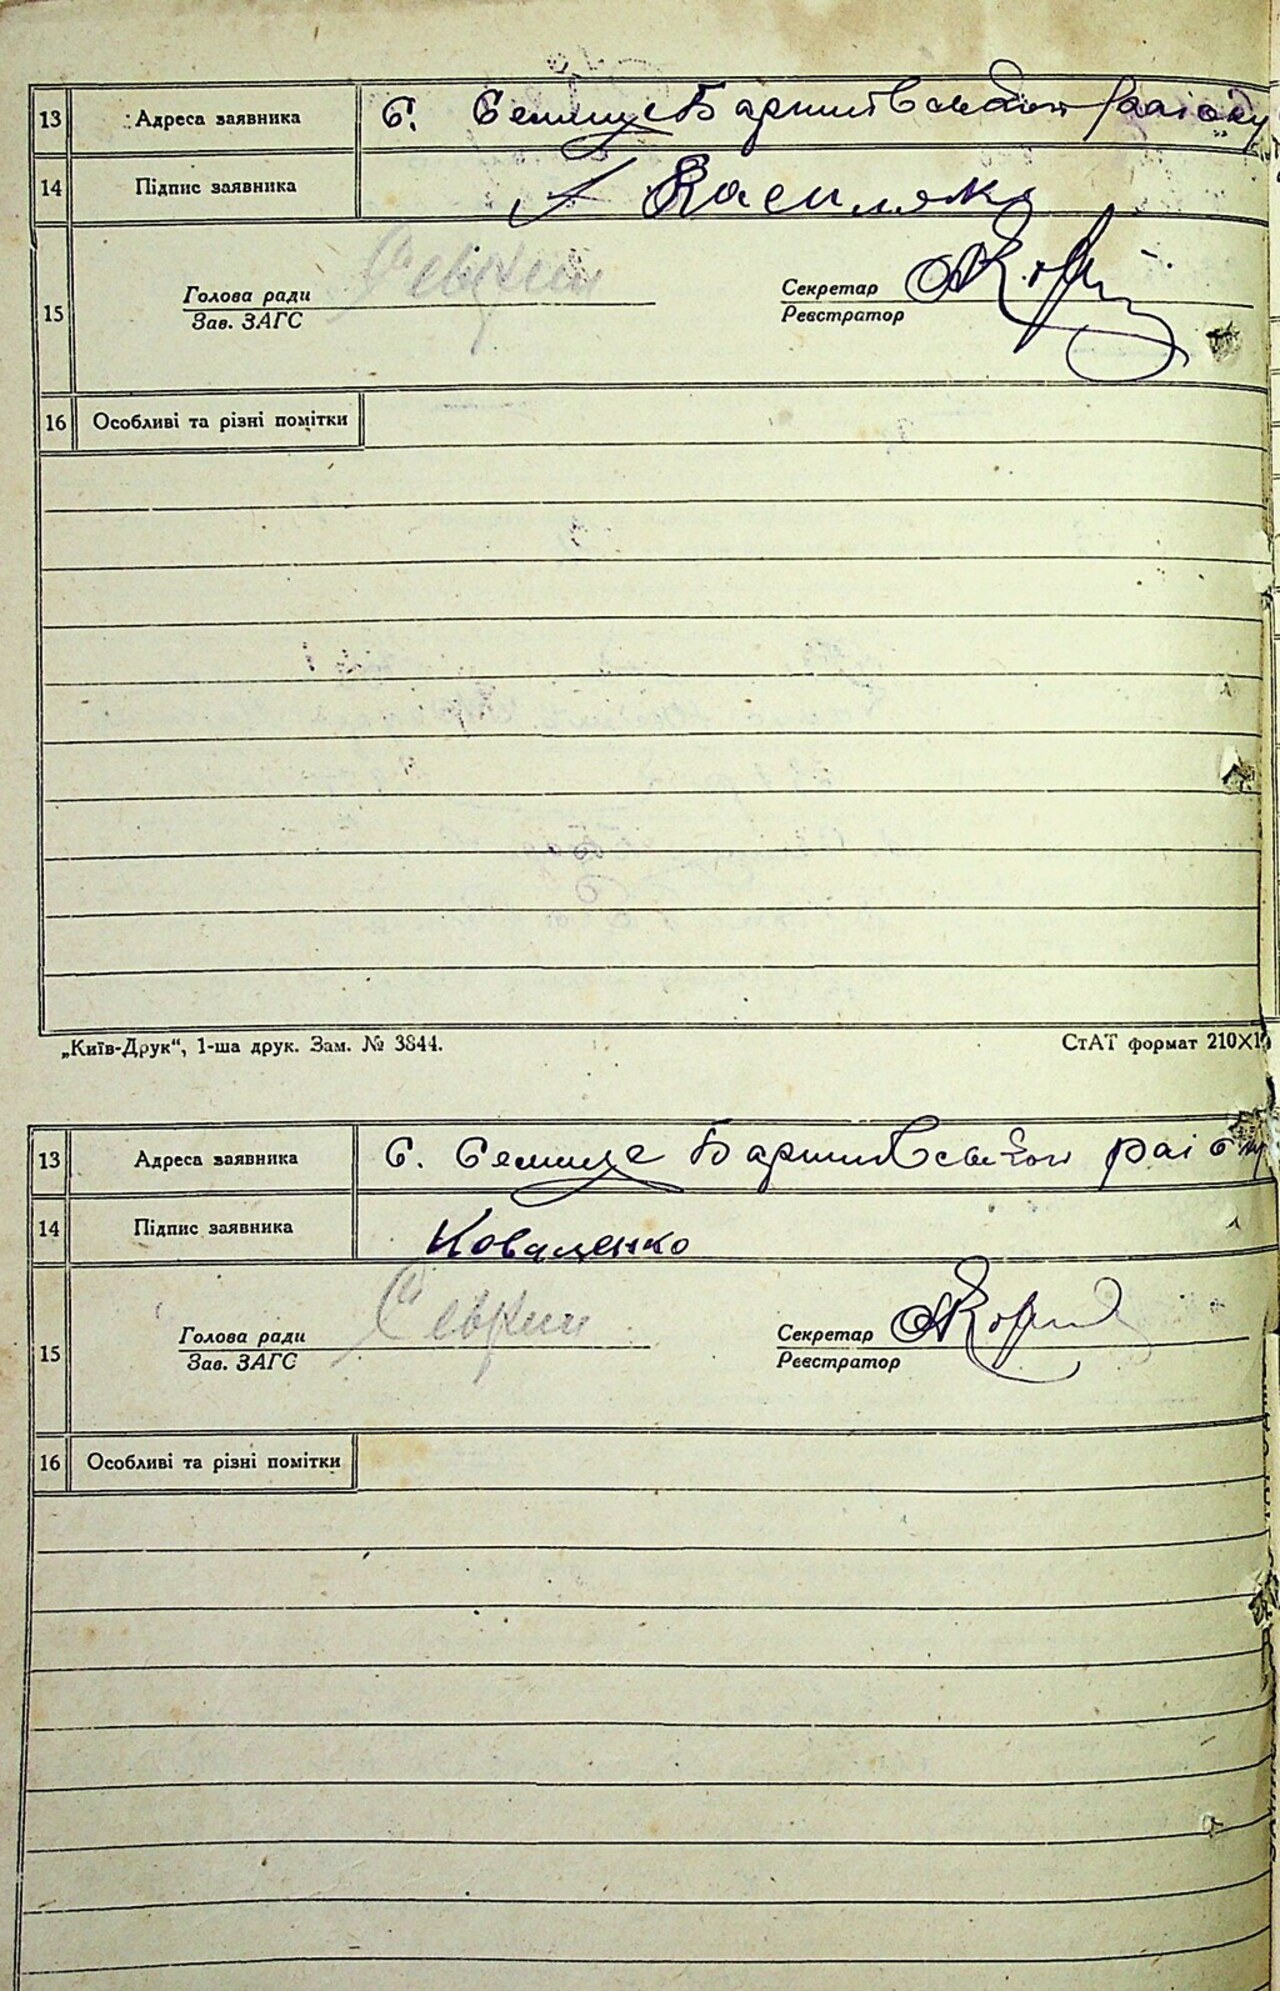 13 Адреса заявника с. Селище Баришівського району
14 Підпис заявника Василяка
Голова ради Севрин Секретар
15 Зав. ЗАГС Реєстратор
16 Особливі та різні помітки
„Київ-Друк“, 1-ша друк. Зам. № 3844. СтАТ формат 210X1
13 Адреса заявника с. Селище Баришівського району
14 Підпис заявника Коваленко
Голова ради Севрин Секретар
15 Зав. ЗАГС Реєстратор
16 Особливі та різні помітки